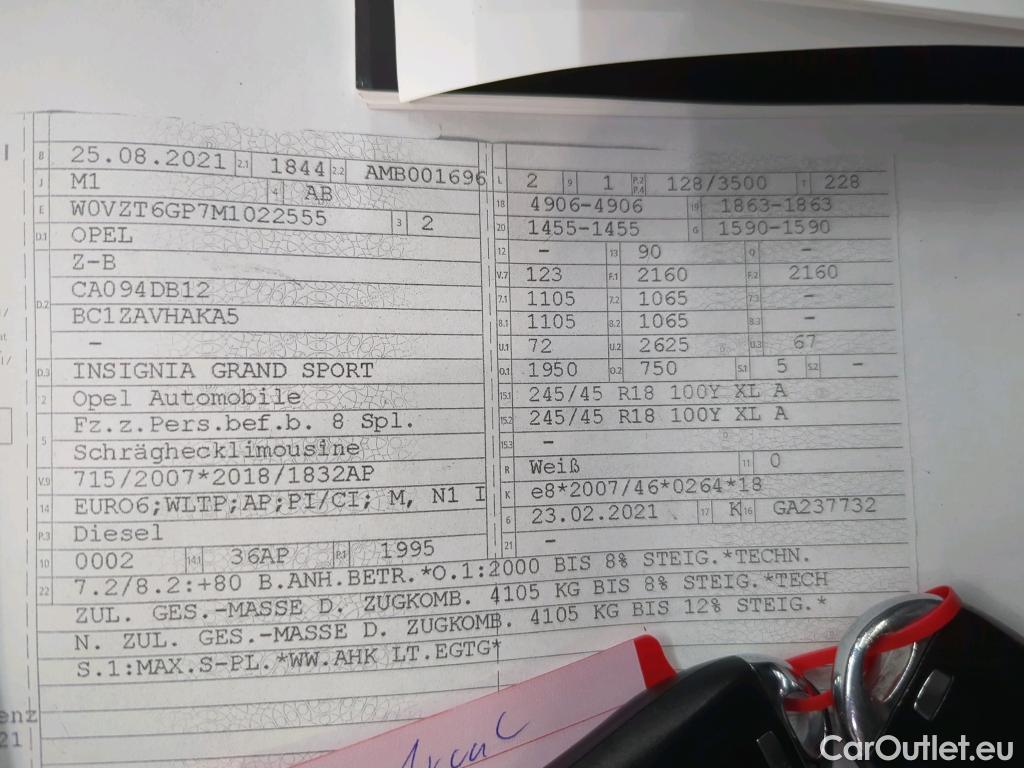 B 25.08.2021 2.1 1844 2.2 AMB001696
J M1 4 AB
E W0VZT6GP7M1022555 3 2
D.1 OPEL
Z-B
D.2 CA094DB12
BC1ZAVHAKA5
-
D.3 INSIGNIA GRAND SPORT
2 Opel Automobile
5 Fz.z.Pers.bef.b. 8 Spl.
Schräghecklimousine
V.9 715/2007*2018/1832AP
14 EURO6;WLTP;AP;PI/CI; M, N1 I
P.3 Diesel
10 0002 14.1 36AP P.1 1995
L 2 9 1 P.2 P.4 128/3500 T 228
18 4906-4906 19 1863-1863
20 1455-1455 G 1590-1590
12 - 13 90 Q -
V.7 123 F.1 2160 F.2 2160
7.1 1105 7.2 1065 7.3 -
8.1 1105 8.2 1065 8.3 -
U.1 72 U.2 2625 U.3 67
O.1 1950 O.2 750 S.1 5 S.2 -
15.1 245/45 R18 100Y XL A
15.2 245/45 R18 100Y XL A
15.3 -
R Weiß 11 0
K e8*2007/46*0264*18
6 23.02.2021 17 K 16 GA237732
21 -
22 7.2/8.2:+80 B.ANH.BETR.*O.1:2000 BIS 8% STEIG.*TECHN.
ZUL. GES.-MASSE D. ZUGKOMB. 4105 KG BIS 8% STEIG.*TECH
N. ZUL. GES.-MASSE D. ZUGKOMB. 4105 KG BIS 12% STEIG.*
S.1:MAX.S-PL.*WW.AHK LT.EGTG*
enz
21
CarOutlet.eu